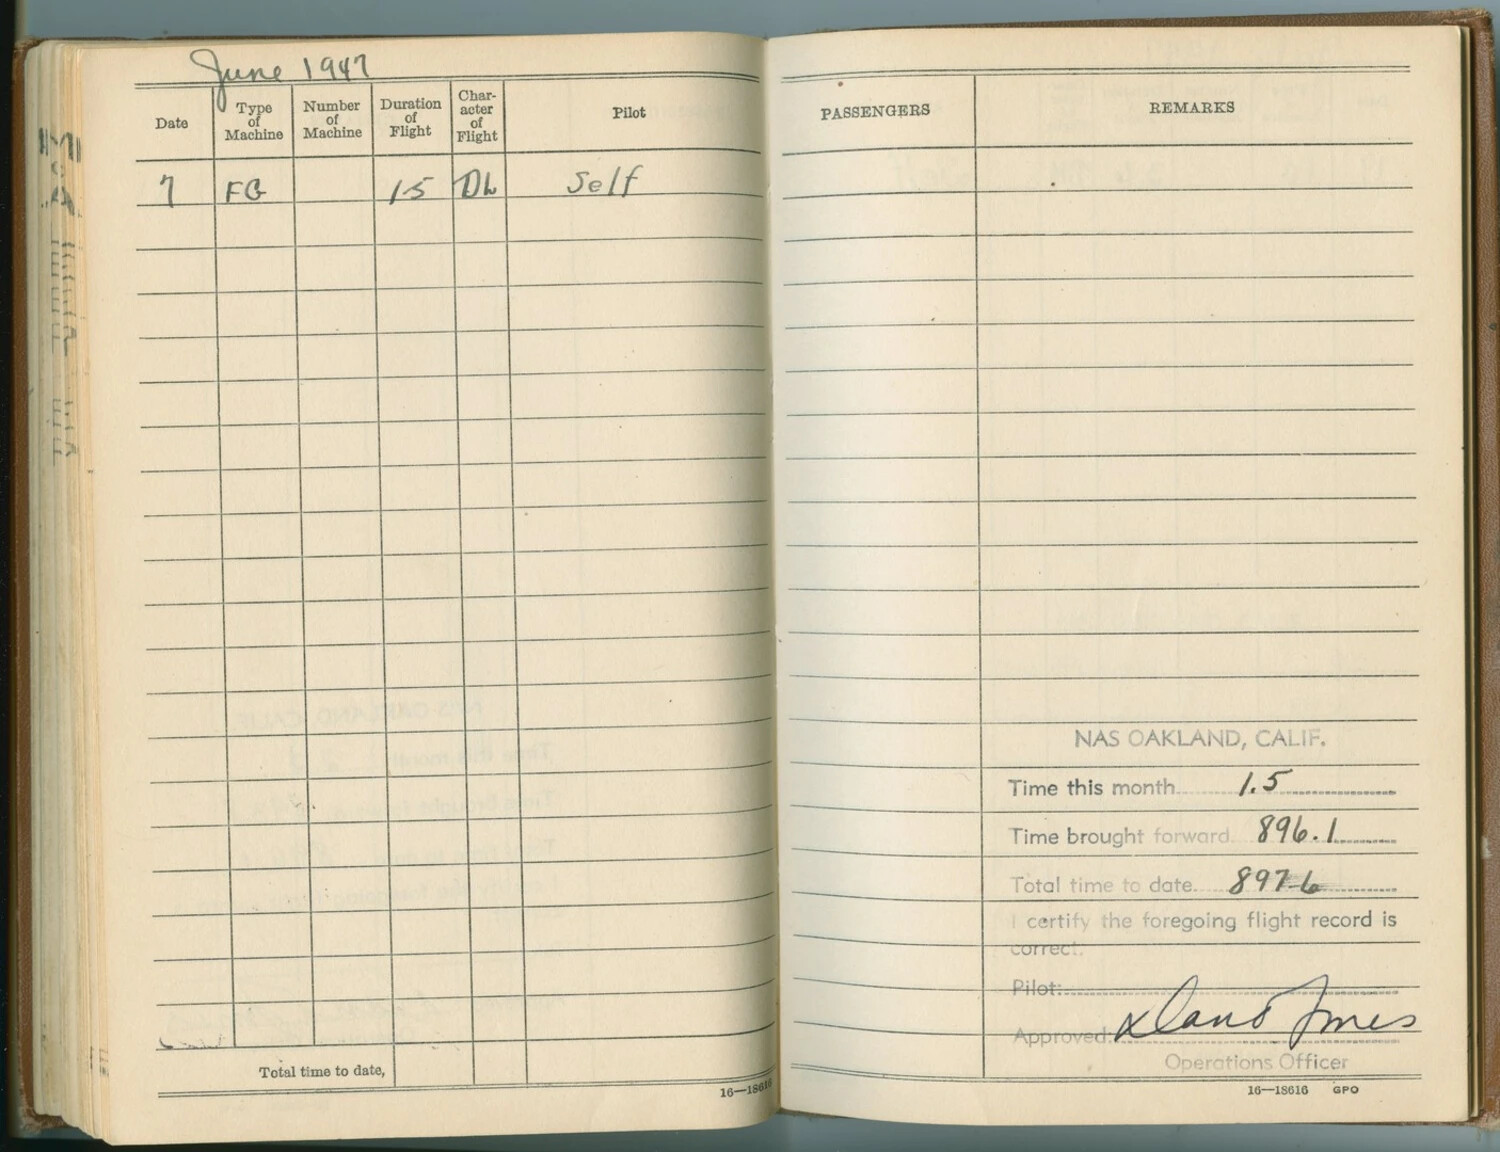 June 1947
Date
Type of Machine
Number of Machine
Duration of Flight
Char-acter of Flight
Pilot
PASSENGERS
REMARKS
7 FG 1.5 Self
NAS OAKLAND, CALIF.
Time this month 1.5
Time brought forward 896.1
Total time to date 897.6
I certify the foregoing flight record is
correct.
Pilot:
Approved:
Operations Officer
Total time to date,
16—18616
16—18616 GPO